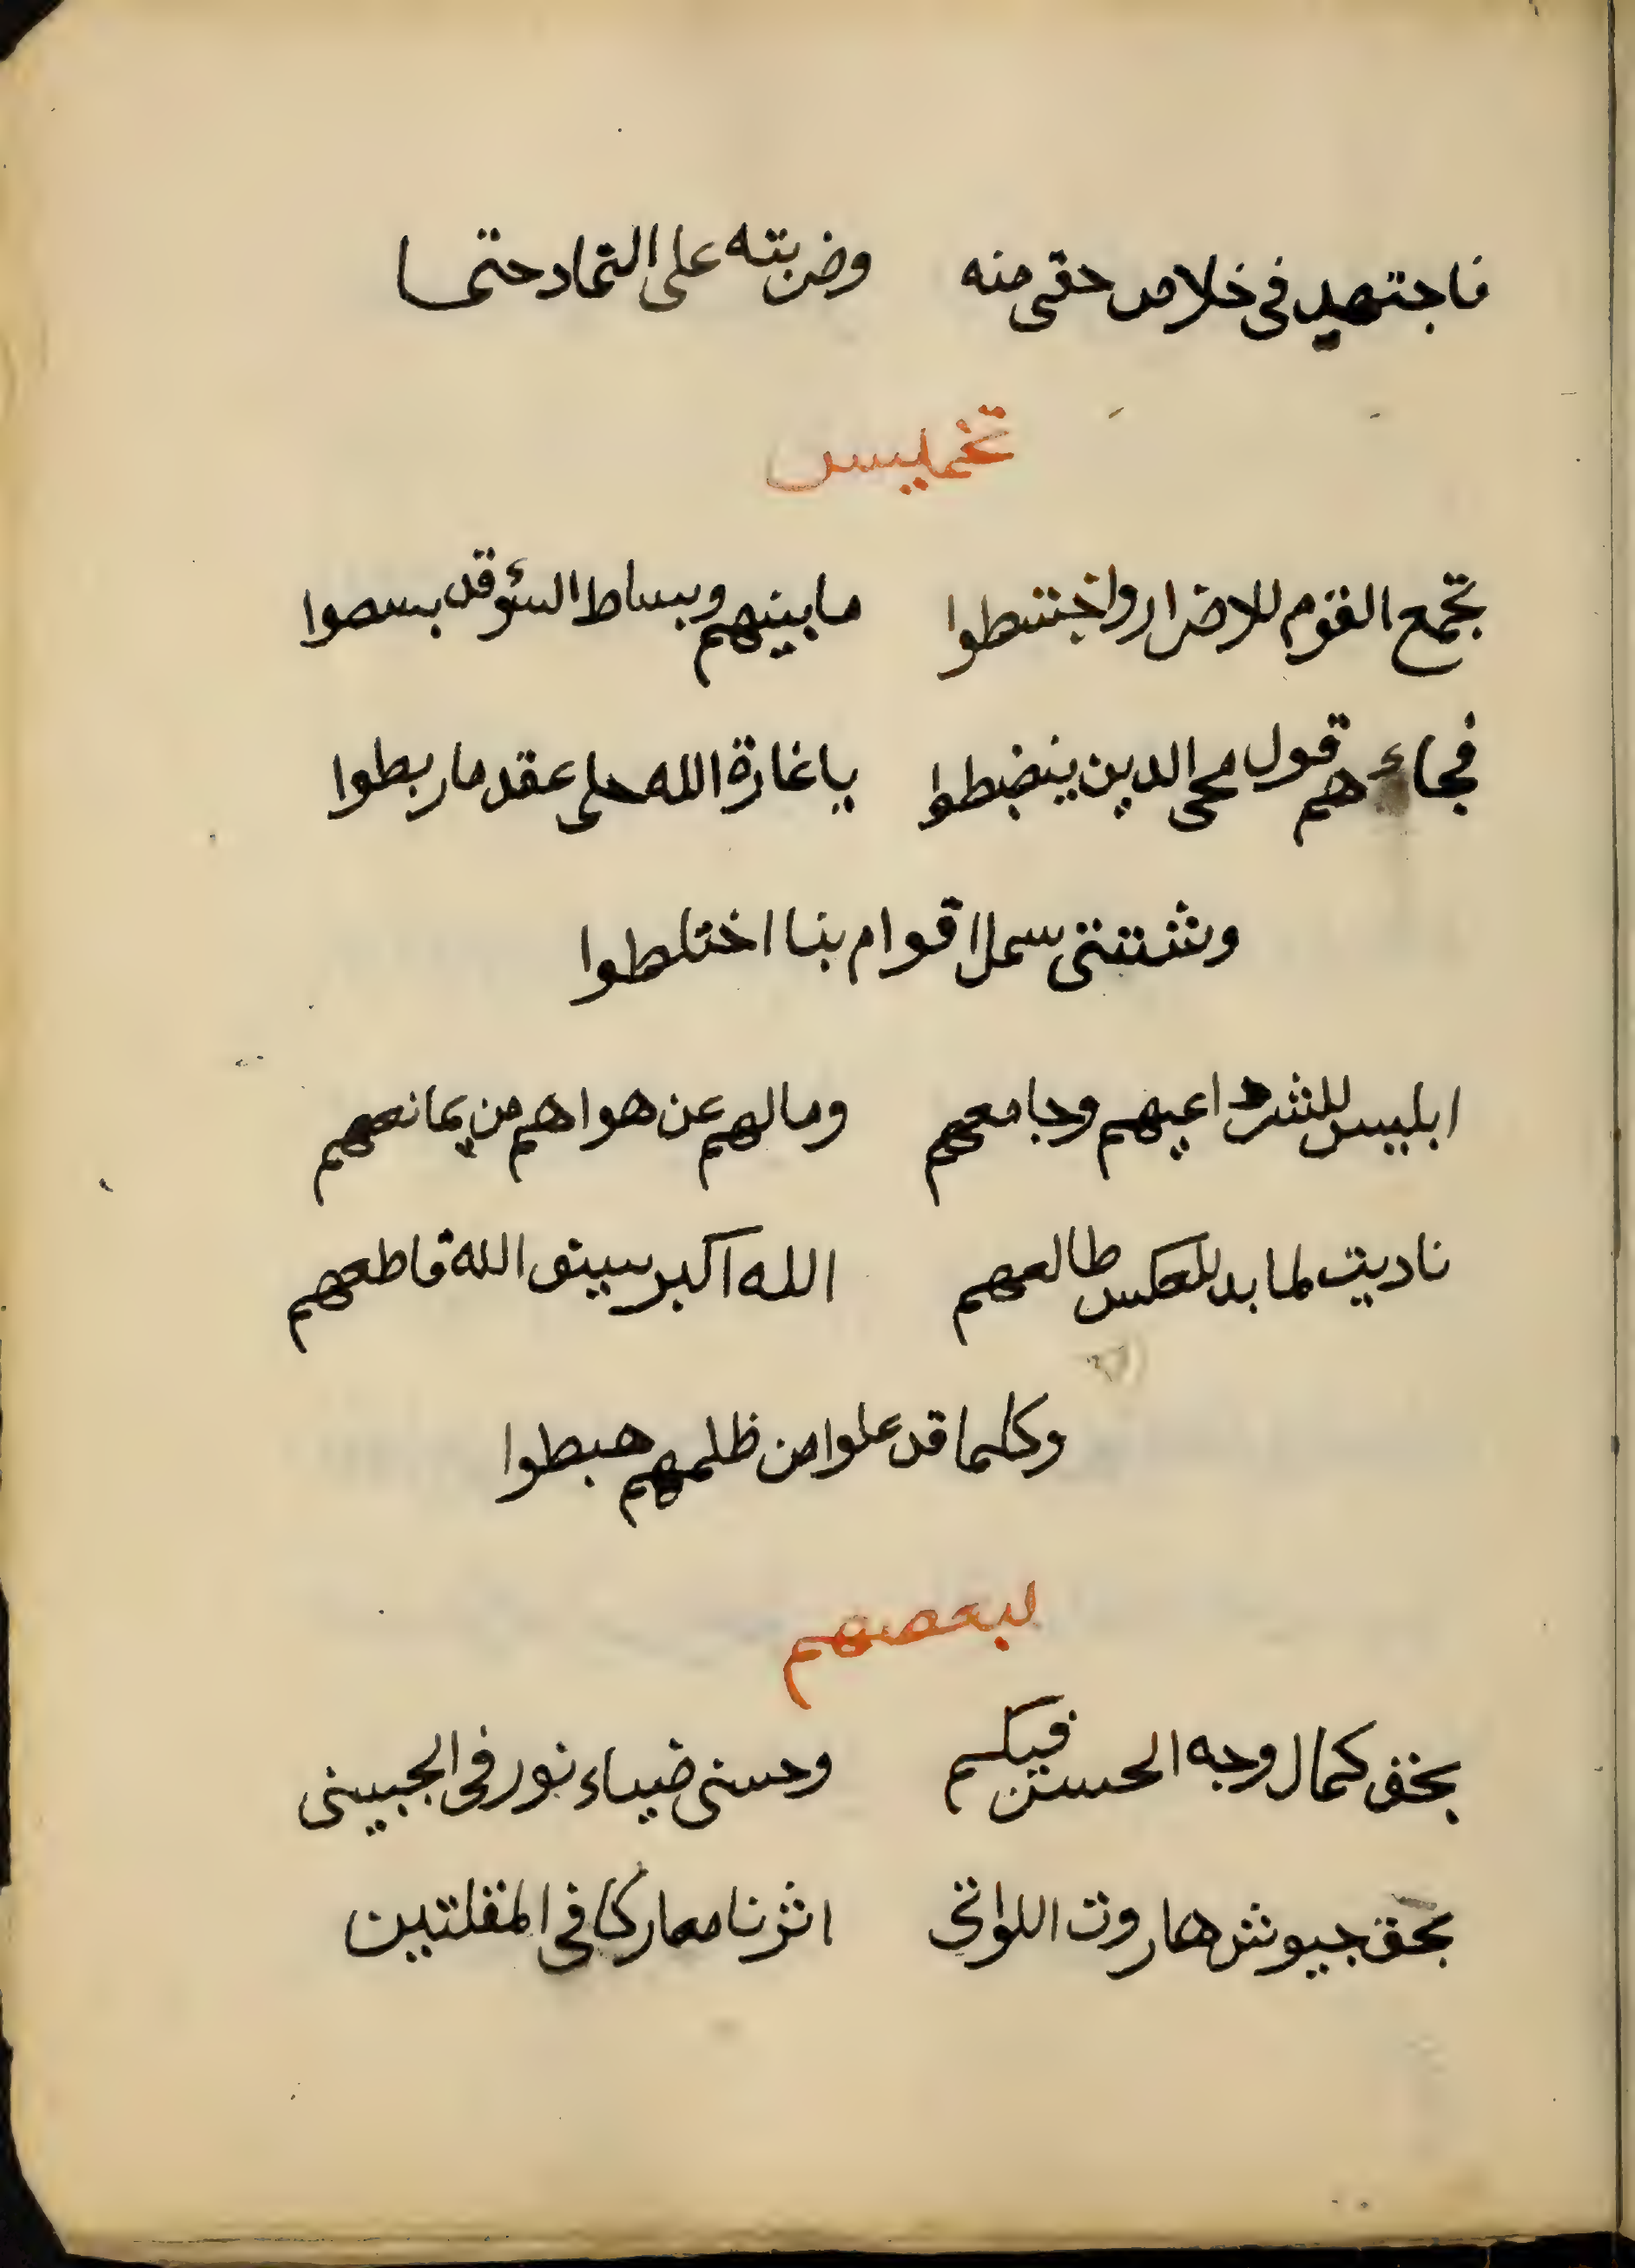 فاجتهد في خلاص حقي منه وضربته على التماد حتما
تخميس
تجمع القوم للاضرار واختبطوا ما بينهم وبساط السؤ قد بسطوا
فجاءهم قول محي الدين ينضبطوا يا غارة الله حلي عقد ما ربطوا
وشتتني شمل اقوام بنا اختلطوا
ابليس للشر داعيهم وجامعهم ومالهم عن هواهم من يمانعهم
ناديت لما بد للعكس طالعهم الله اكبر سيف الله قاطعهم
وكلما قد علوا من ظلمهم هبطوا
لبعضهم
بحق كمال وجه الحسن فيكم وحسني ضياء نور في الجبيني
بحق جيوش هاروت اللواتي اثرنا معاركا في المقلتين